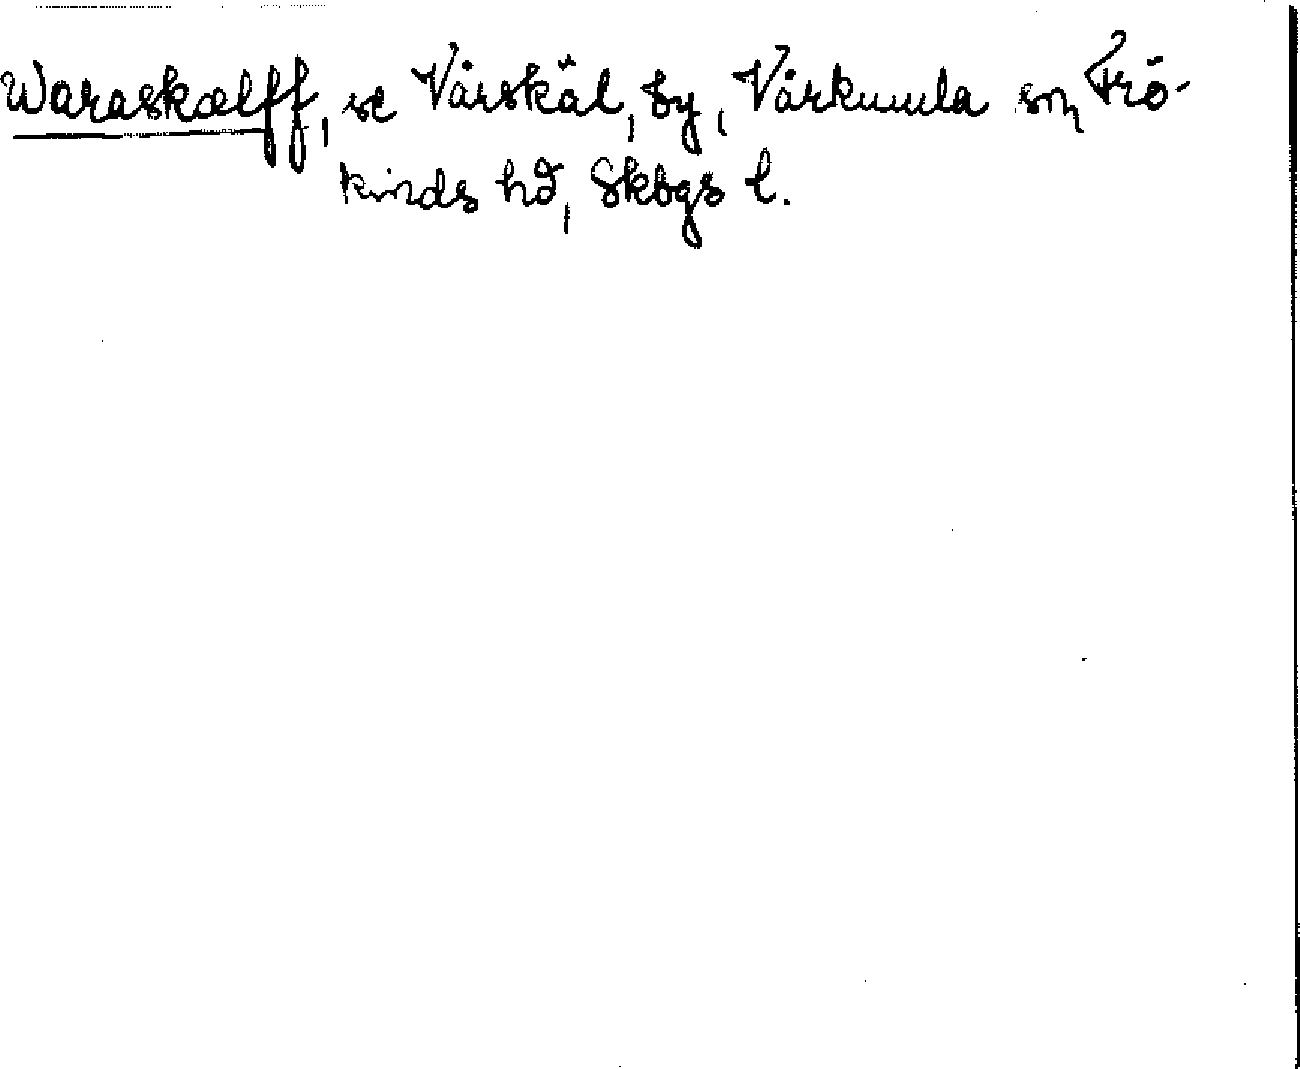 Waraskælff, se Vårskäl, by, Vårkumla sn, Frö-
kinds hd, Skbgs l.